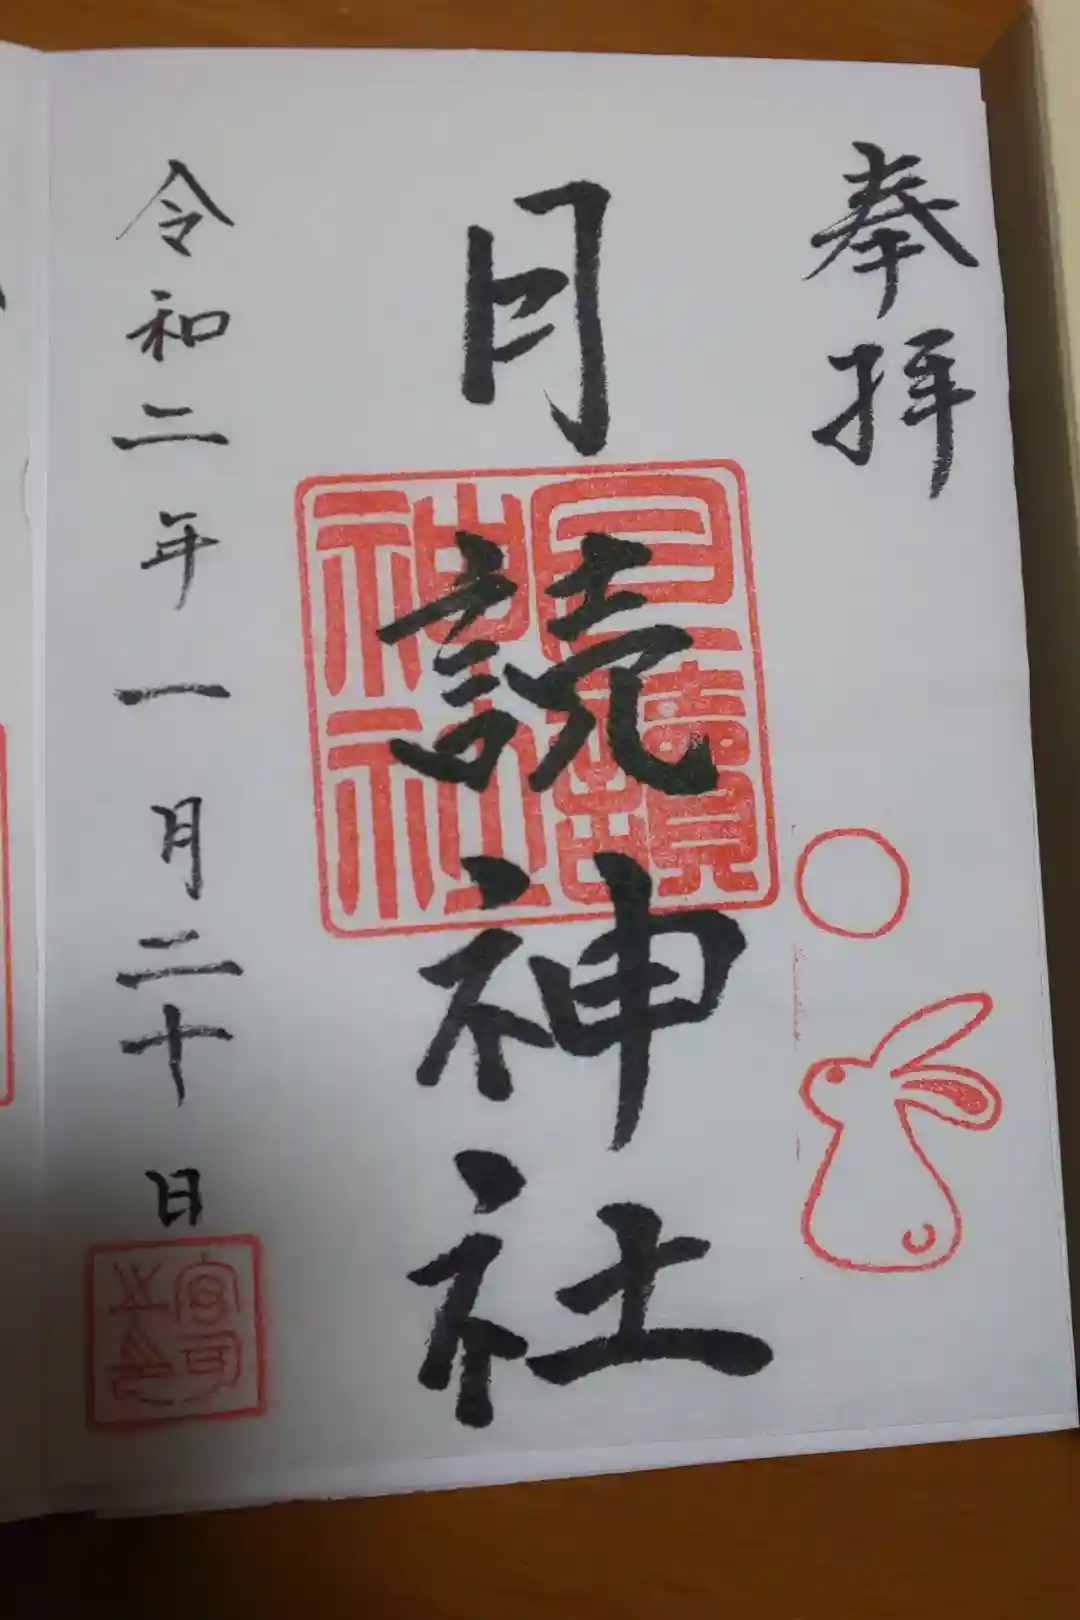 奉拝
月読神社
月讀神社
令和二年一月二十日
宮司之印